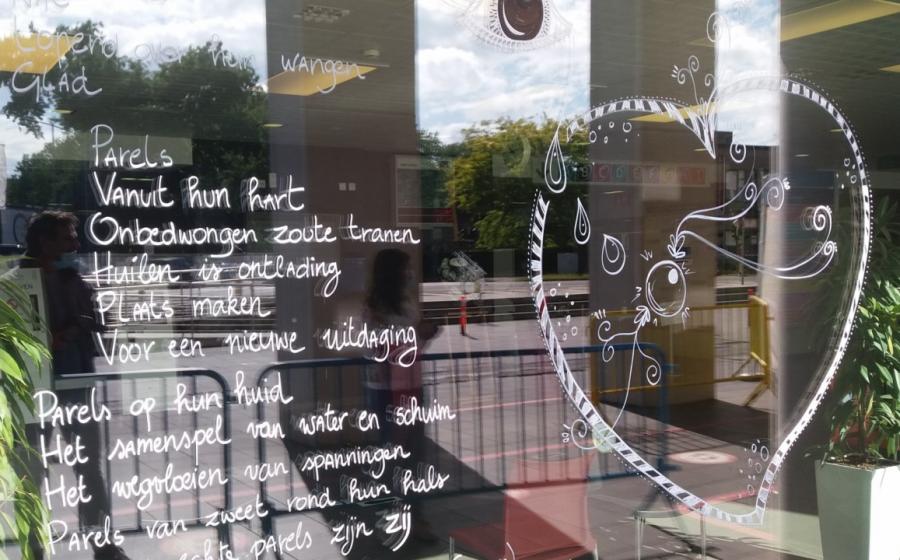 over hun wangen
Glad
Parels
Vanuit hun hart
Onbedwongen zoute tranen
Huilen is ontlading
Plaats maken
Voor een nieuwe uitdaging
Parels op hun huid
Het samenspel van water en schuim
Het wegvloeien van spanningen
Parels van zweet rond hun hals
echte parels zijn zij